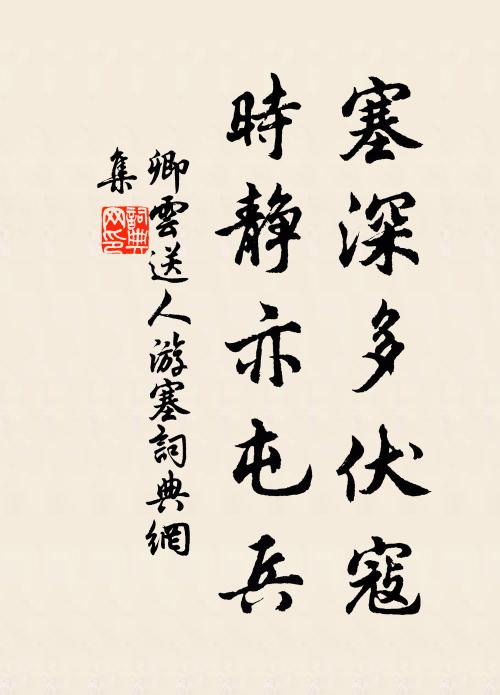 塞深多伏寇
時静亦屯兵
卿雲送人游塞詞典網
集
詞典网印